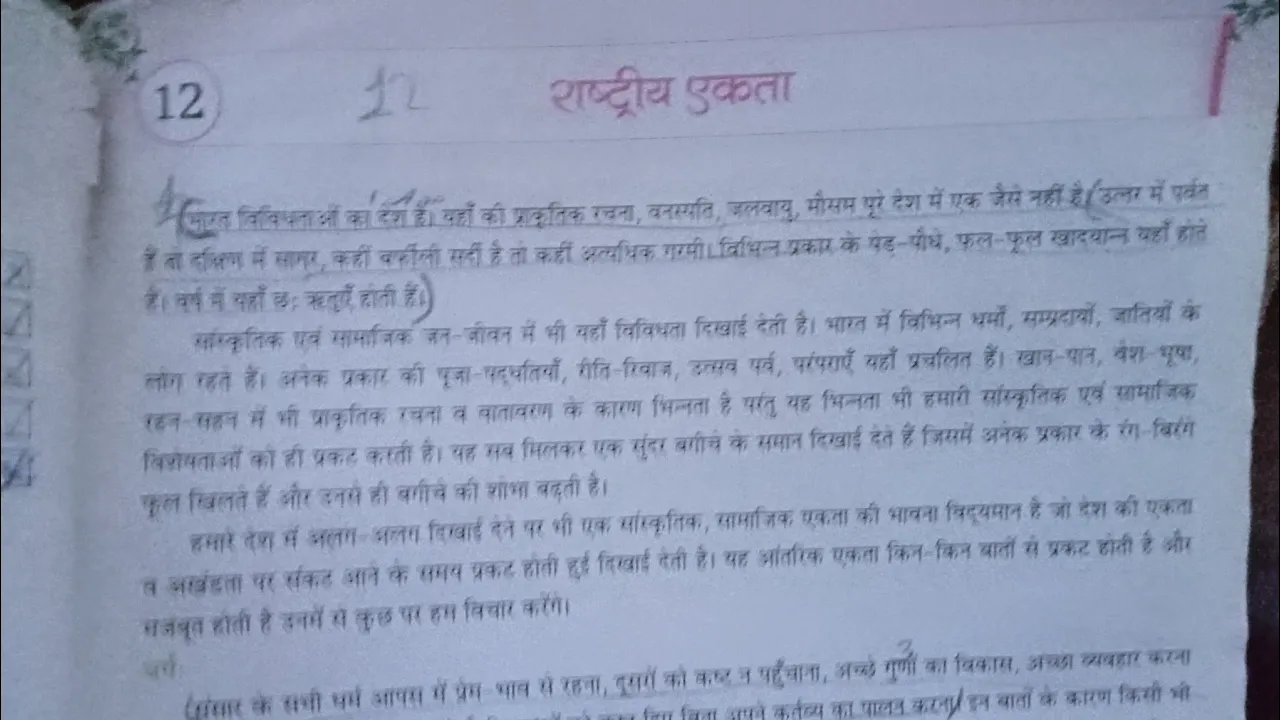 12
12
राष्ट्रीय एकता
भारत विविधताओं का देश है। यहाँ की प्राकृतिक रचना, वनस्पति, जलवायु, मौसम पूरे देश में एक जैसे नहीं है। उत्तर में पर्वत
हैं तो दक्षिण में सागर, कहीं बर्फीली सर्दी है तो कहीं अत्यधिक गरमी। विभिन्न प्रकार के पेड़-पौधे, फल-फूल खाद्यान्न यहाँ होते
हैं। वर्ष में यहाँ छ: ऋतुएँ होती हैं।
सांस्कृतिक एवं सामाजिक जन-जीवन में भी यहाँ विविधता दिखाई देती है। भारत में विभिन्न धर्मों, सम्प्रदायों, जातियों के
लोग रहते हैं। अनेक प्रकार की पूजा-पद्धतियाँ, रीति-रिवाज, उत्सव पर्व, परंपराएँ यहाँ प्रचलित हैं। खान-पान, वेश-भूषा,
रहन-सहन में भी प्राकृतिक रचना व वातावरण के कारण भिन्नता है परंतु यह भिन्नता भी हमारी सांस्कृतिक एवं सामाजिक
विशेषताओं को ही प्रकट करती है। यह सब मिलकर एक सुंदर बगीचे के समान दिखाई देते हैं जिसमें अनेक प्रकार के रंग-बिरंगे
फूल खिलते हैं और उनसे ही बगीचे की शोभा बढ़ती है।
हमारे देश में अलग-अलग दिखाई देने पर भी एक सांस्कृतिक, सामाजिक एकता की भावना विद्यमान है जो देश की एकता
व अखंडता पर संकट आने के समय प्रकट होती हुई दिखाई देती है। यह आंतरिक एकता किन-किन बातों से प्रकट होती है और
मजबूत होती है उनमें से कुछ पर हम विचार करेंगे।
धर्म
3
संसार के सभी धर्म आपस में प्रेम-भाव से रहना, दूसरों को कष्ट न पहुँचाना, अच्छे गुणों का विकास, अच्छा व्यवहार करना
बिना अपने कर्तव्य का पालन करना। इन बातों के कारण किसी भी